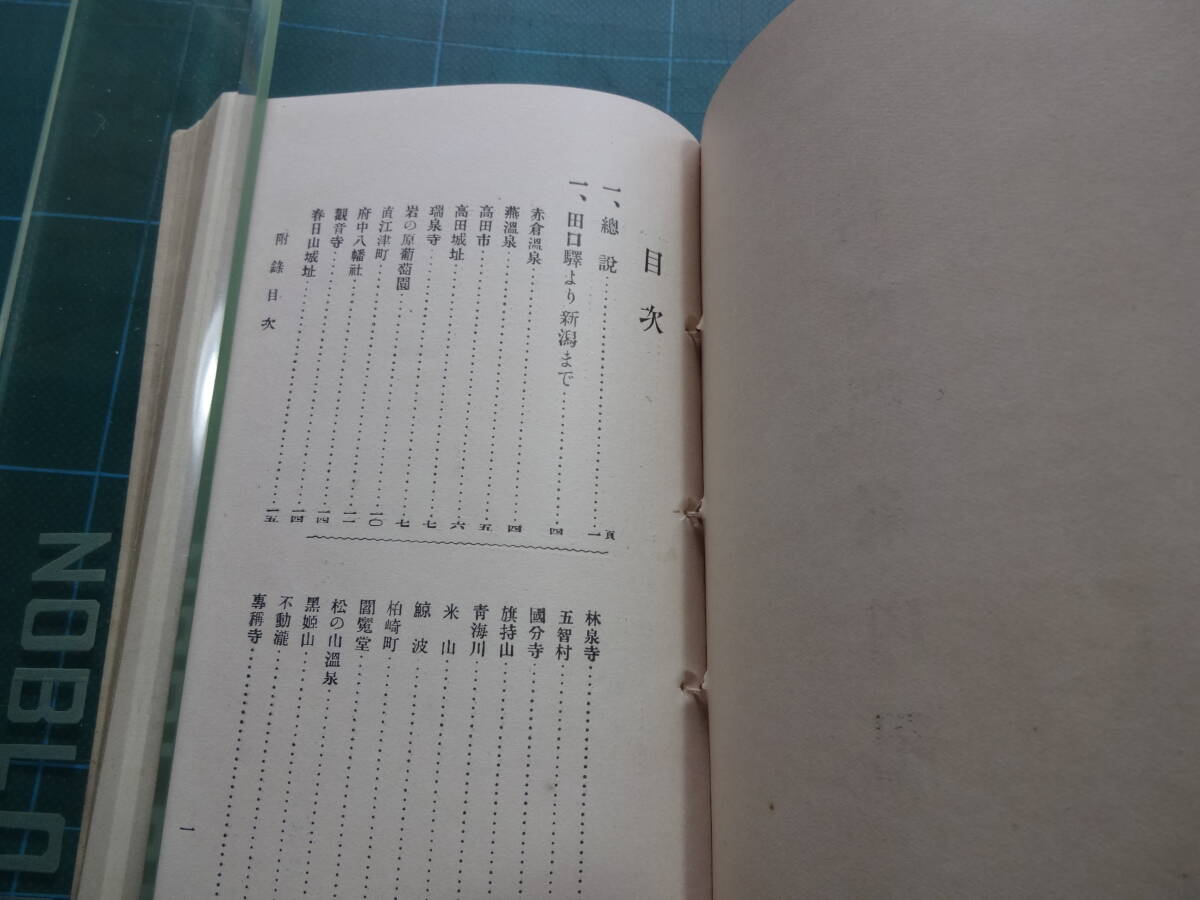 目次
頁
一、總說……一
一、田口驛より新潟まで……四
赤倉溫泉……四
燕溫泉……四
高田市……五
高田城址……六
瑞泉寺……七
岩の原葡萄園……七
直江津町……一〇
府中八幡社……一一
觀音寺……一四
春日山城址……一四
一五
林泉寺
五智村
國分寺
旗持山
靑海川
米山
鯨波
柏崎町
閻魔堂
松の山溫泉
黑姬山
不動瀧
專稱寺
附錄目次
一
NOBLO